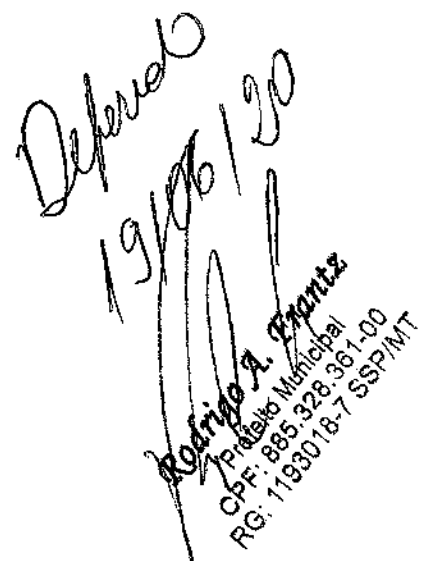 Deferido
19/06/20
Rodrigo A. Frantz
Prefeito Municipal
CPF: 885.328.361-00
RG: 1193018-7 SSP/MT